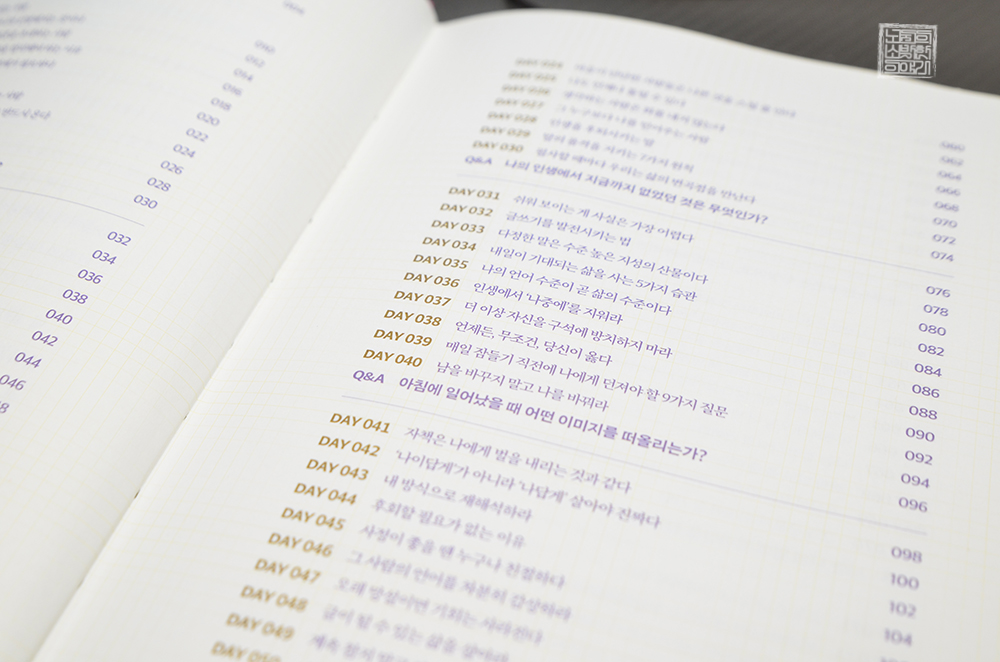 010
012
014
016
018
020
022
024
026
028
030
032
034
036
038
040
042
044
046
DAY 024
DAY 025 나도 언제나 틀릴 수 있다 060
DAY 026 062
DAY 027 그 누구보다 나를 믿어주는 사람 064
DAY 028 인생을 후퇴시키는 말 066
DAY 029 말의 품격을 지키는 7가지 원칙 068
DAY 030 필사할 때마다 우리는 삶의 변곡점을 만난다 070
Q&A 나의 인생에서 지금까지 없었던 것은 무엇인가? 072
074
DAY 031 쉬워 보이는 게 사실은 가장 어렵다 076
DAY 032 글쓰기를 발전시키는 법 078
DAY 033 다정한 말은 수준 높은 지성의 산물이다 080
DAY 034 내일이 기대되는 삶을 사는 5가지 습관 082
DAY 035 나의 언어 수준이 곧 삶의 수준이다 084
DAY 036 인생에서 '나중에'를 지워라 086
DAY 037 더 이상 자신을 구석에 방치하지 마라 088
DAY 038 언제든, 무조건, 당신이 옳다 090
DAY 039 매일 잠들기 직전에 나에게 던져야 할 9가지 질문 092
DAY 040 남을 바꾸지 말고 나를 바꿔라 094
Q&A 아침에 일어났을 때 어떤 이미지를 떠올리는가? 096
DAY 041 자책은 나에게 벌을 내리는 것과 같다 098
DAY 042 '나이답게'가 아니라 '나답게' 살아야 진짜다 100
DAY 043 내 방식으로 재해석하라 102
DAY 044 후회할 필요가 없는 이유 104
DAY 045 사정이 좋을 땐 누구나 친절하다
DAY 046 그 사람의 언어를 차분히 감상하라
DAY 047 오래 망설이면 기회는 사라진다
DAY 048 글이 될 수 있는 삶을 살아라
DAY 049
DAY 050